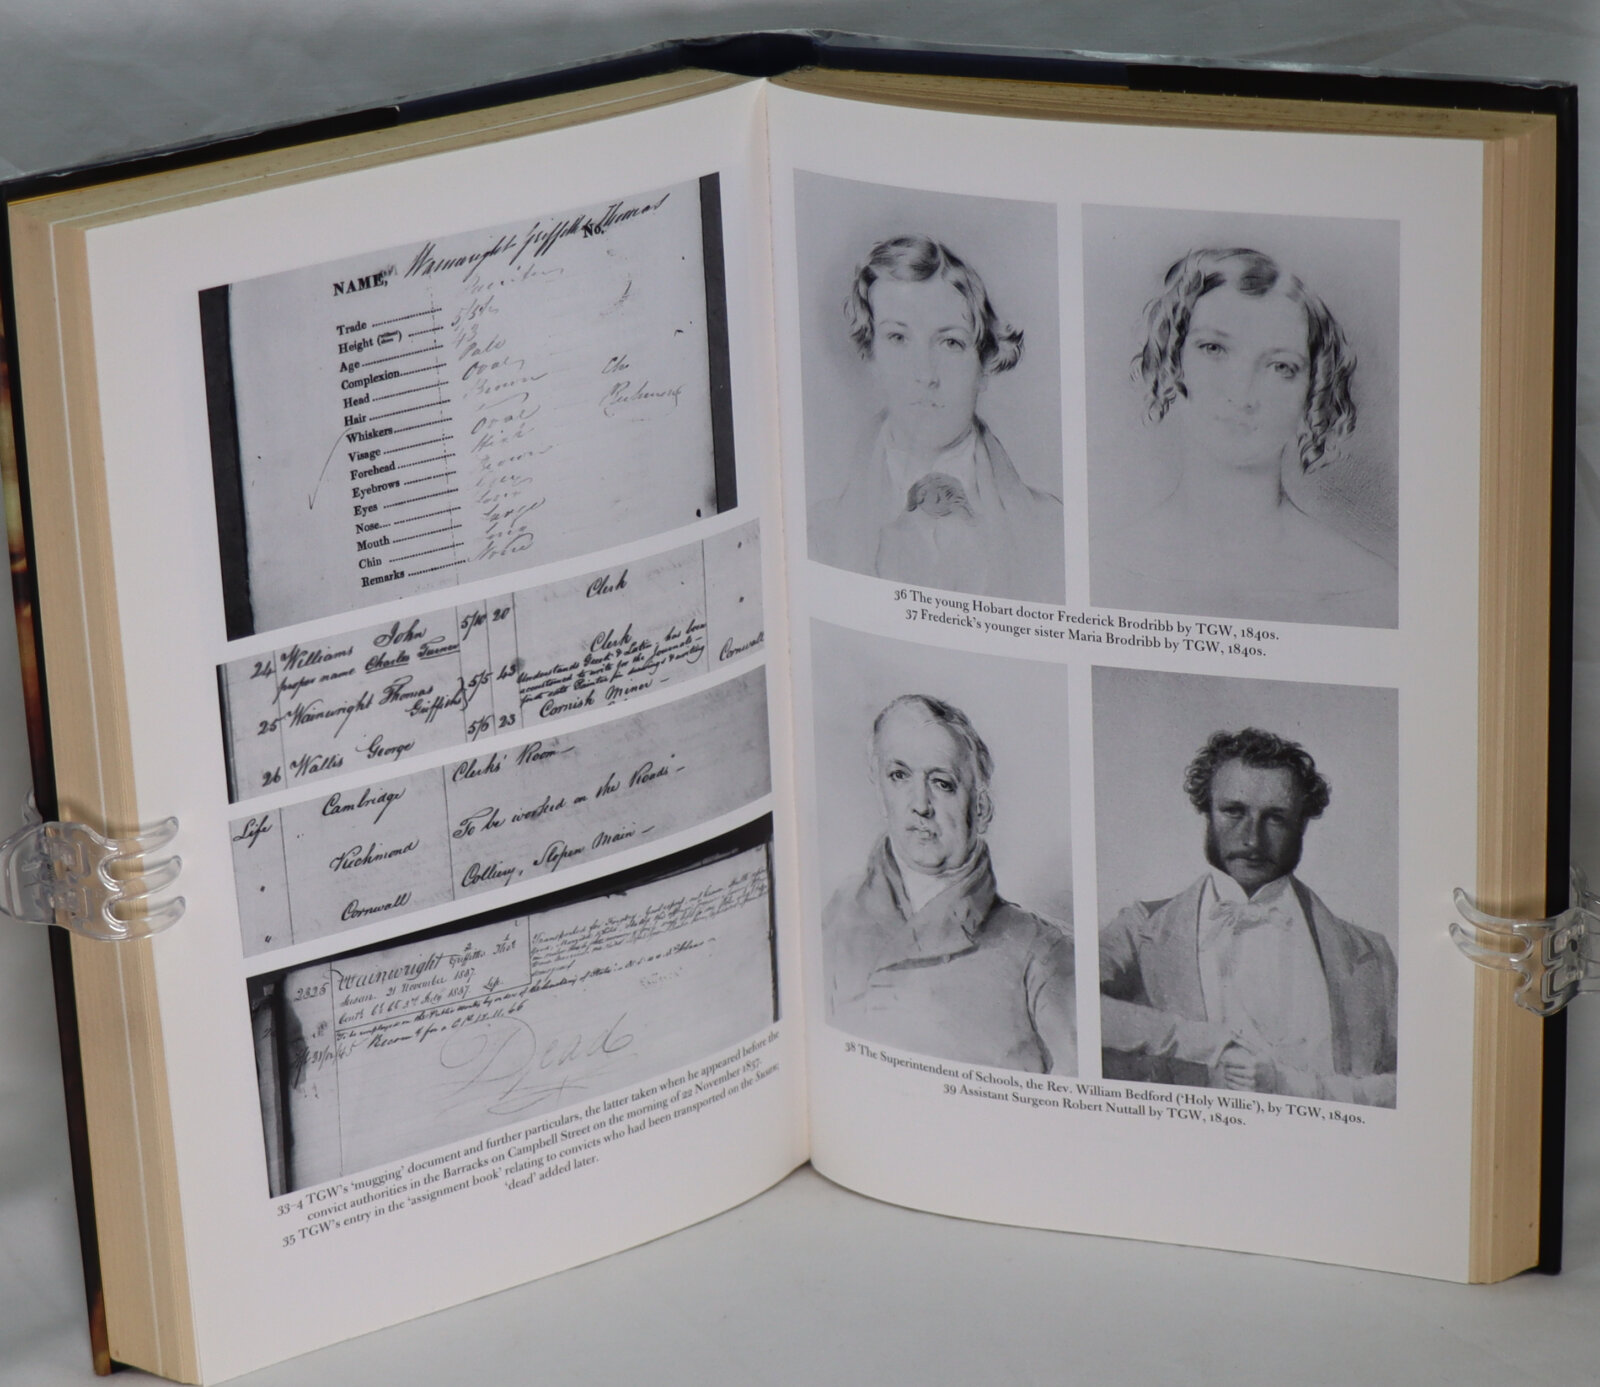 No.
NAME, Wainwright Griffiths Thomas
Trade
Height (without shoes) 5/5½
Age 43
Complexion Pale
Head Oval
Hair Brown
Whiskers
Visage Oval
Forehead High
Eyebrows Brown
Eyes
Nose Long
Mouth Large
Chin Long
Remarks None
24 Williams John 5/10 20 Clerk
proper name Charles Turner
25 Wainwright Thomas Griffiths 5/5 43 Clerk
Understands Greek & Latin, has been
accustomed to write for the Journals -
first rate Painter for drawings & writing
Cornwall
26 Wallis George 5/6 23 Cornish Miner -
Life Cambridge Clerks' Room -
" Richmond To be worked on the Roads -
" Cornwall Colliery, Slopen Main -
2325 Wainwright Griffiths Thos
Susan 21 November 1837.
Cent: Cr: Ct: 3rd July 1837. Life
Dead
33–4 TGW's 'mugging' document and further particulars, the latter taken when he appeared before the
convict authorities in the Barracks on Campbell Street on the morning of 22 November 1837.
35 TGW's entry in the 'assignment book' relating to convicts who had been transported on the Susan;
'dead' added later.
36 The young Hobart doctor Frederick Brodribb by TGW, 1840s.
37 Frederick's younger sister Maria Brodribb by TGW, 1840s.
38 The Superintendent of Schools, the Rev. William Bedford ('Holy Willie'), by TGW, 1840s.
39 Assistant Surgeon Robert Nuttall by TGW, 1840s.